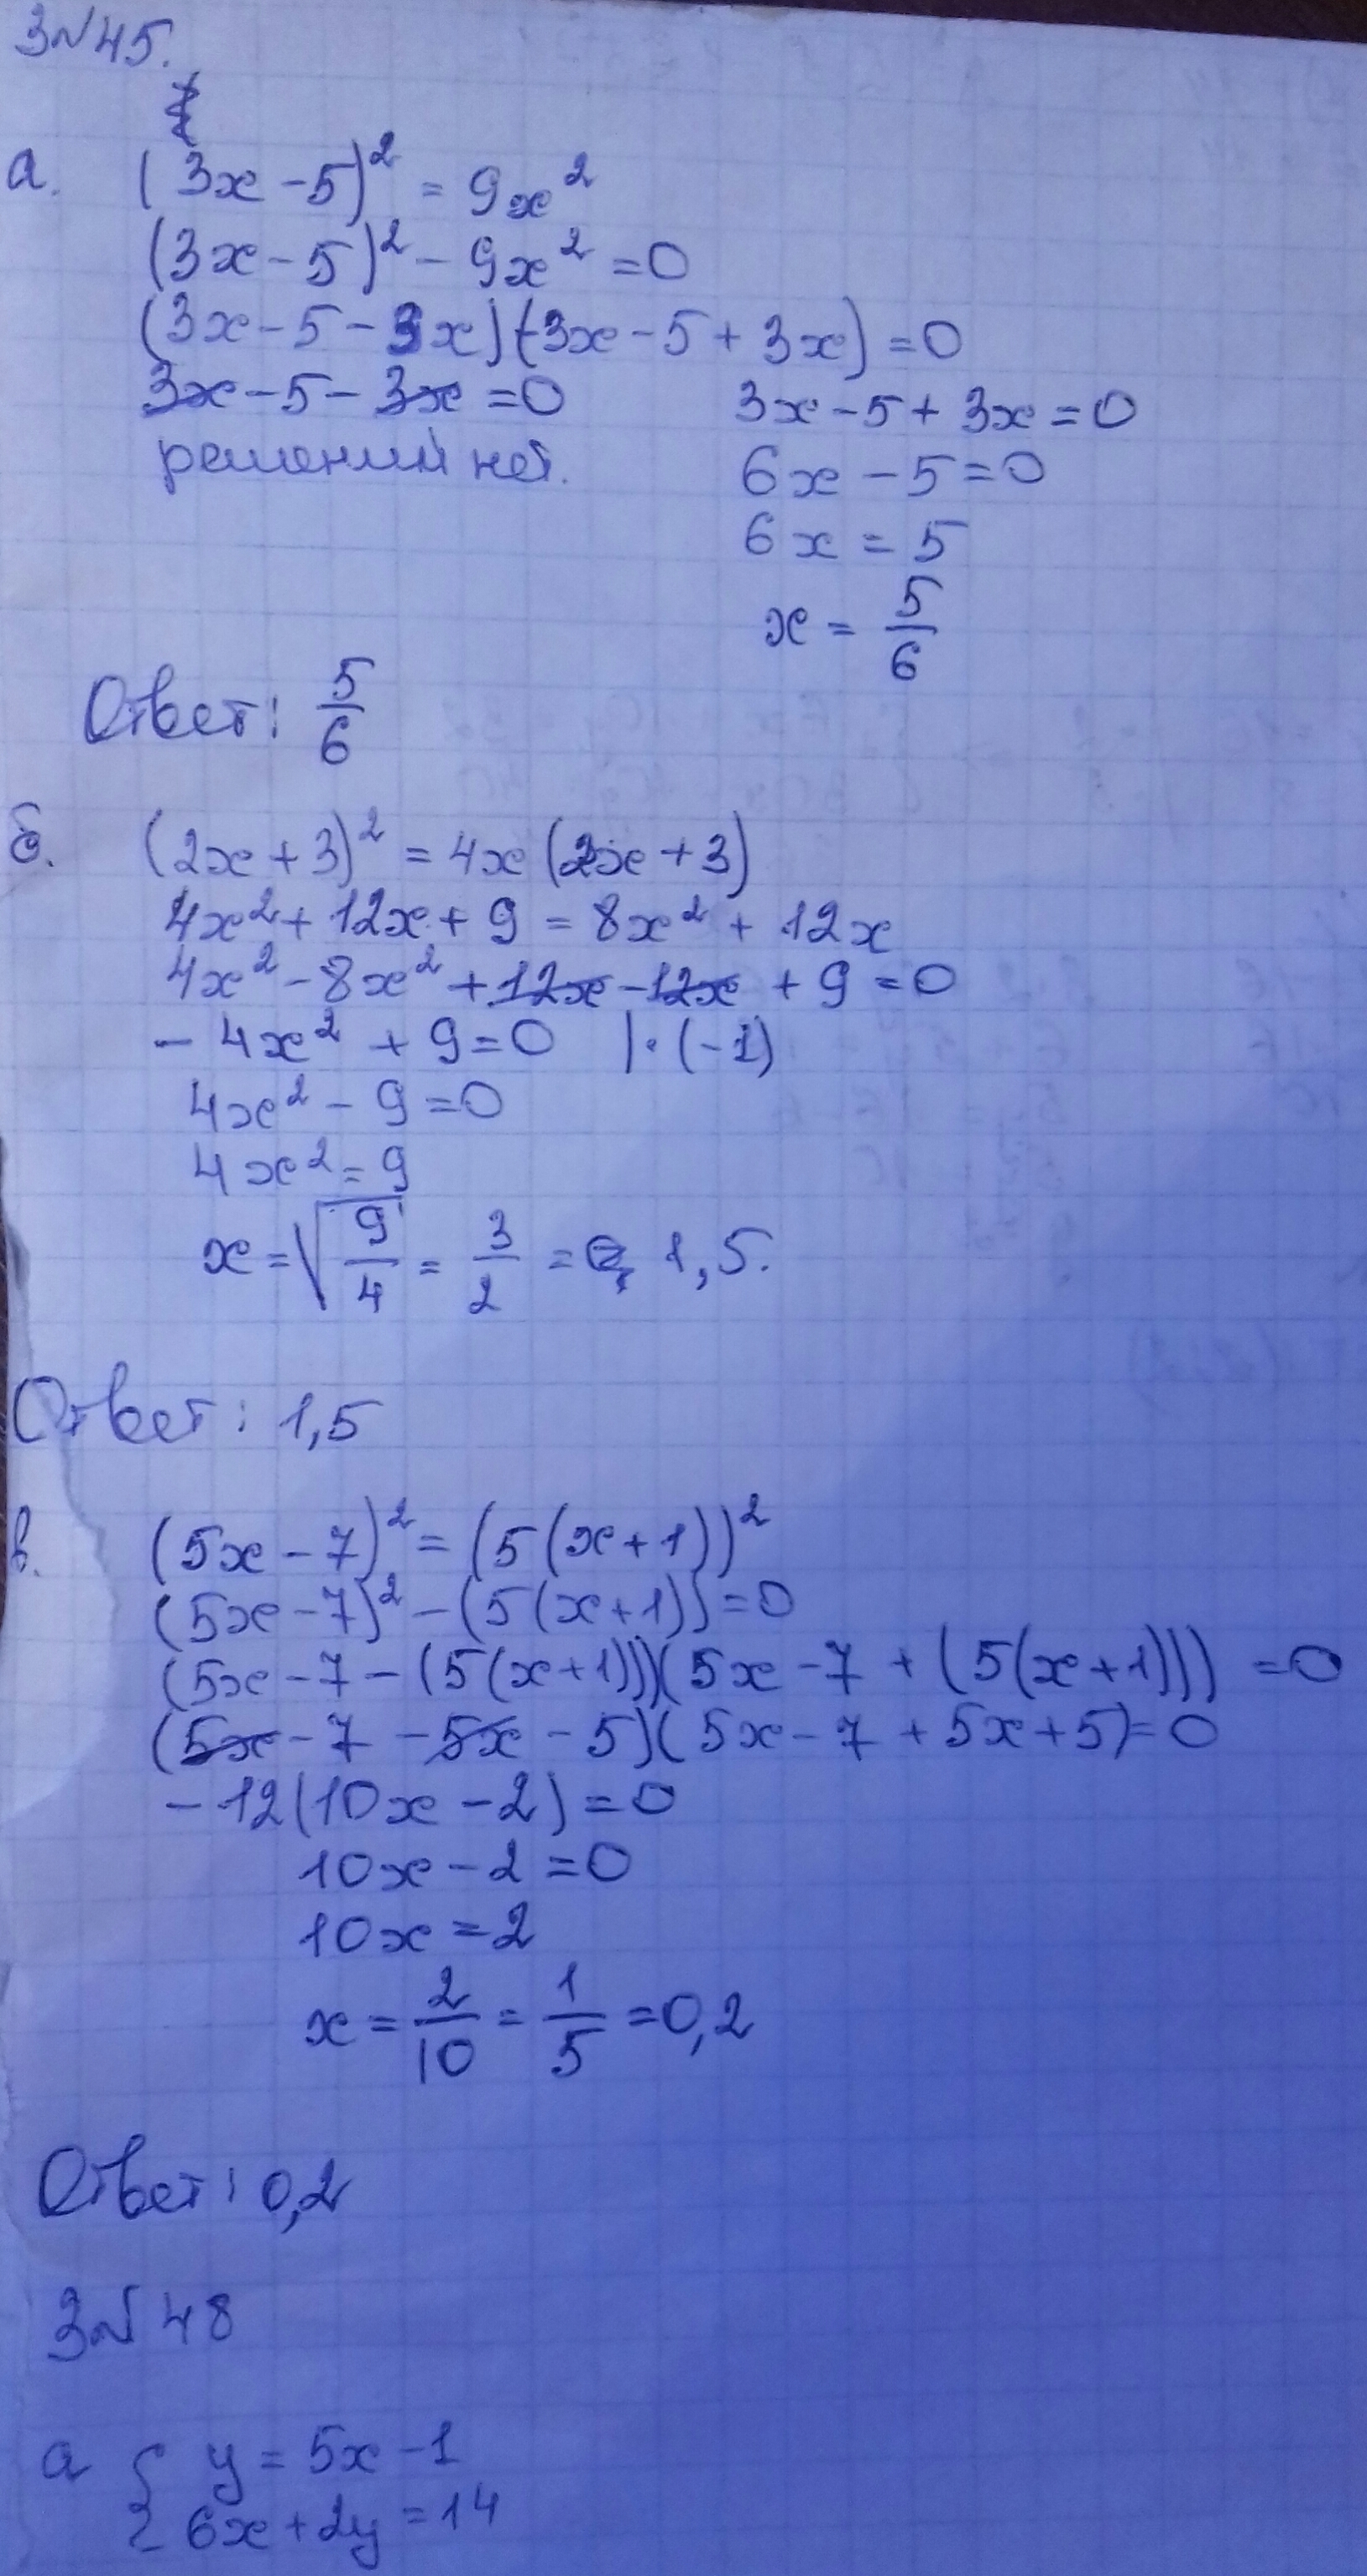 3№45.
а. (3x-5)² = 9x²
(3x-5)² - 9x² = 0
(3x-5-3x)(3x-5+3x) = 0
3x-5-3x = 0 3x-5+3x = 0
решений нет. 6x-5=0
6x = 5
x = 5/6
Ответ: 5/6
б. (2x+3)² = 4x(2x+3)
4x²+12x+9 = 8x²+12x
4x²-8x²+12x-12x+9=0
-4x²+9=0 |·(-1)
4x²-9=0
4x²=9
x=√9/4 = 3/2 = 1,5.
Ответ: 1,5
в. (5x-7)² = (5(x+1))²
(5x-7)² - (5(x+1))=0
(5x-7-(5(x+1)))(5x-7+(5(x+1))) = 0
(5x-7-5x-5)(5x-7+5x+5)=0
-12(10x-2)=0
10x-2=0
10x=2
x = 2/10 = 1/5 = 0,2
Ответ: 0,2
3№48
а { y = 5x-1
6x+2y=14